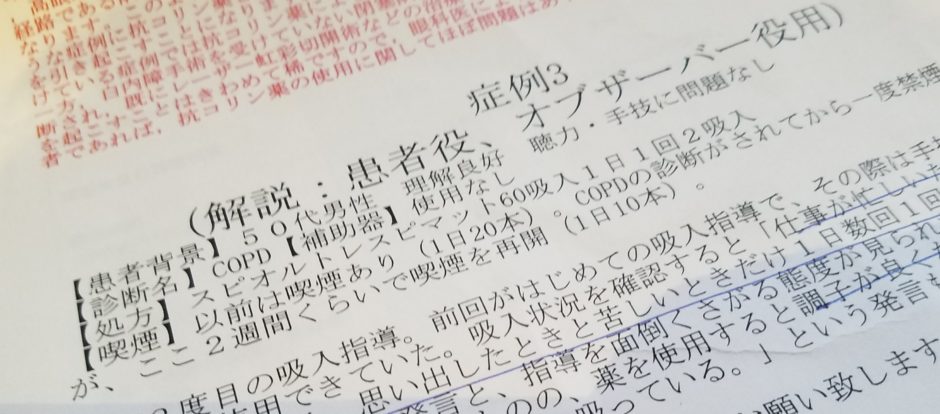 高眼
経路である
な症例に抗コリン薬
を引き起こすことになりま
けている症例では抗コリン薬
一方、白内障手術を受けていない閉塞
断され、既にレーザー虹彩切開術などの治療
を起こすことはきわめて稀ですので、眼科医によ
者であれば，抗コリン薬の使用に関してほぼ問題はあ
症例3
（解説：患者役、オブザーバー役用）
【患者背景】５０代男性　理解良好　聴力・手技に問題なし
【診断名】COPD【補助器】使用なし
【処方】スピオルトレスピマット60吸入１日１回２吸入
【喫煙】以前は喫煙あり（1日20本）。COPDの診断がされてから一度禁煙
が、ここ２週間くらいで喫煙を再開（1日10本）。
度目の吸入指導。前回がはじめての吸入指導で、その際は手技
使用できていた。吸入状況を確認すると「仕事が忙しいた
思い出したときと苦しいときだけ１日数回１回
発言と、指導を面倒くさがる態度が見られ
ものの、薬を使用すると調子が良く
吸っている。」という発言も
お願い致します